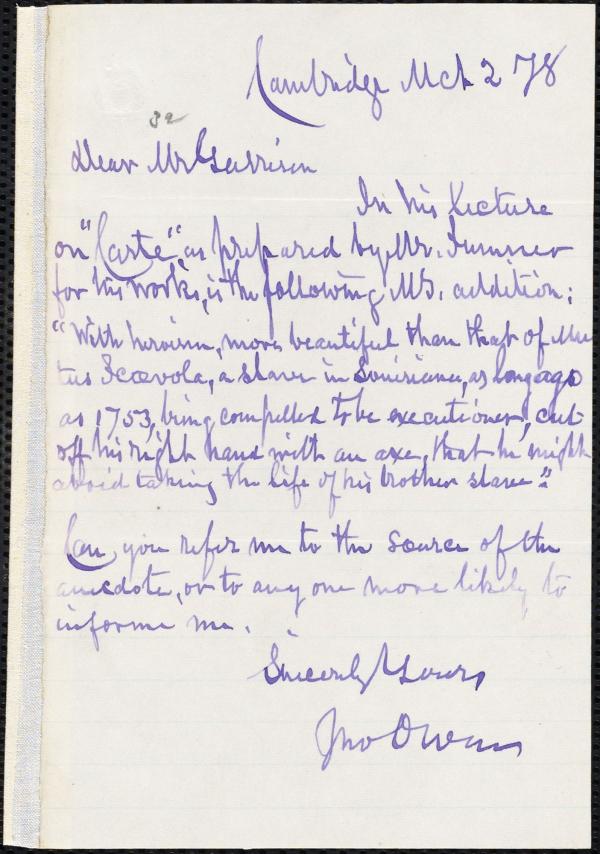 Cambridge Mch 2 78
32
Dear Mr Garrison
In his Lecture
on "Caste", as prepared by Mr. Sumner
for his works, is the following MS. addition:
"With heroism, more beautiful than that of Mu
tus Scævola, a slave in Louisiana, as long ago
as 1753, being compelled to be executioner, cut
off his right hand with an axe, that he might
avoid taking the life of his brother slave".
Can you refer me to the source of the
anecdote, or to any one more likely to
inform me.
Sincerely Yours,
Jno Owen